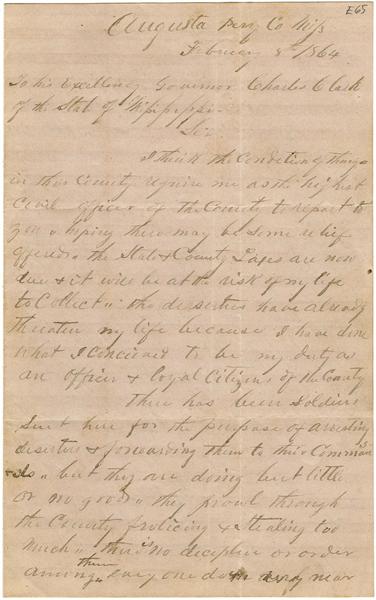 E65
Augusta Perry Co Miss
February 8th 1864
To his Excellency Governor Charles Clark
of the State of Mississippi
Sir
I think the Condition of things
in this County require me as the highest
Civil officer of the County to report to
you hoping there may be some relief
offered the State & County Taxes are now
due & it will be at the risk of my life
to Collect the deserters have already
threaten my life because I have done
what I conceived to be my duty as
an officer & loyal Citizens of the County
There has been Soldiers
Sent here for the purpose of arresting
deserters & forwarding them to their Comman
ds but they are doing but little
or no good they prowl through
the County frolicing & stealing too
much there is no decipline or order
among them every one does very near